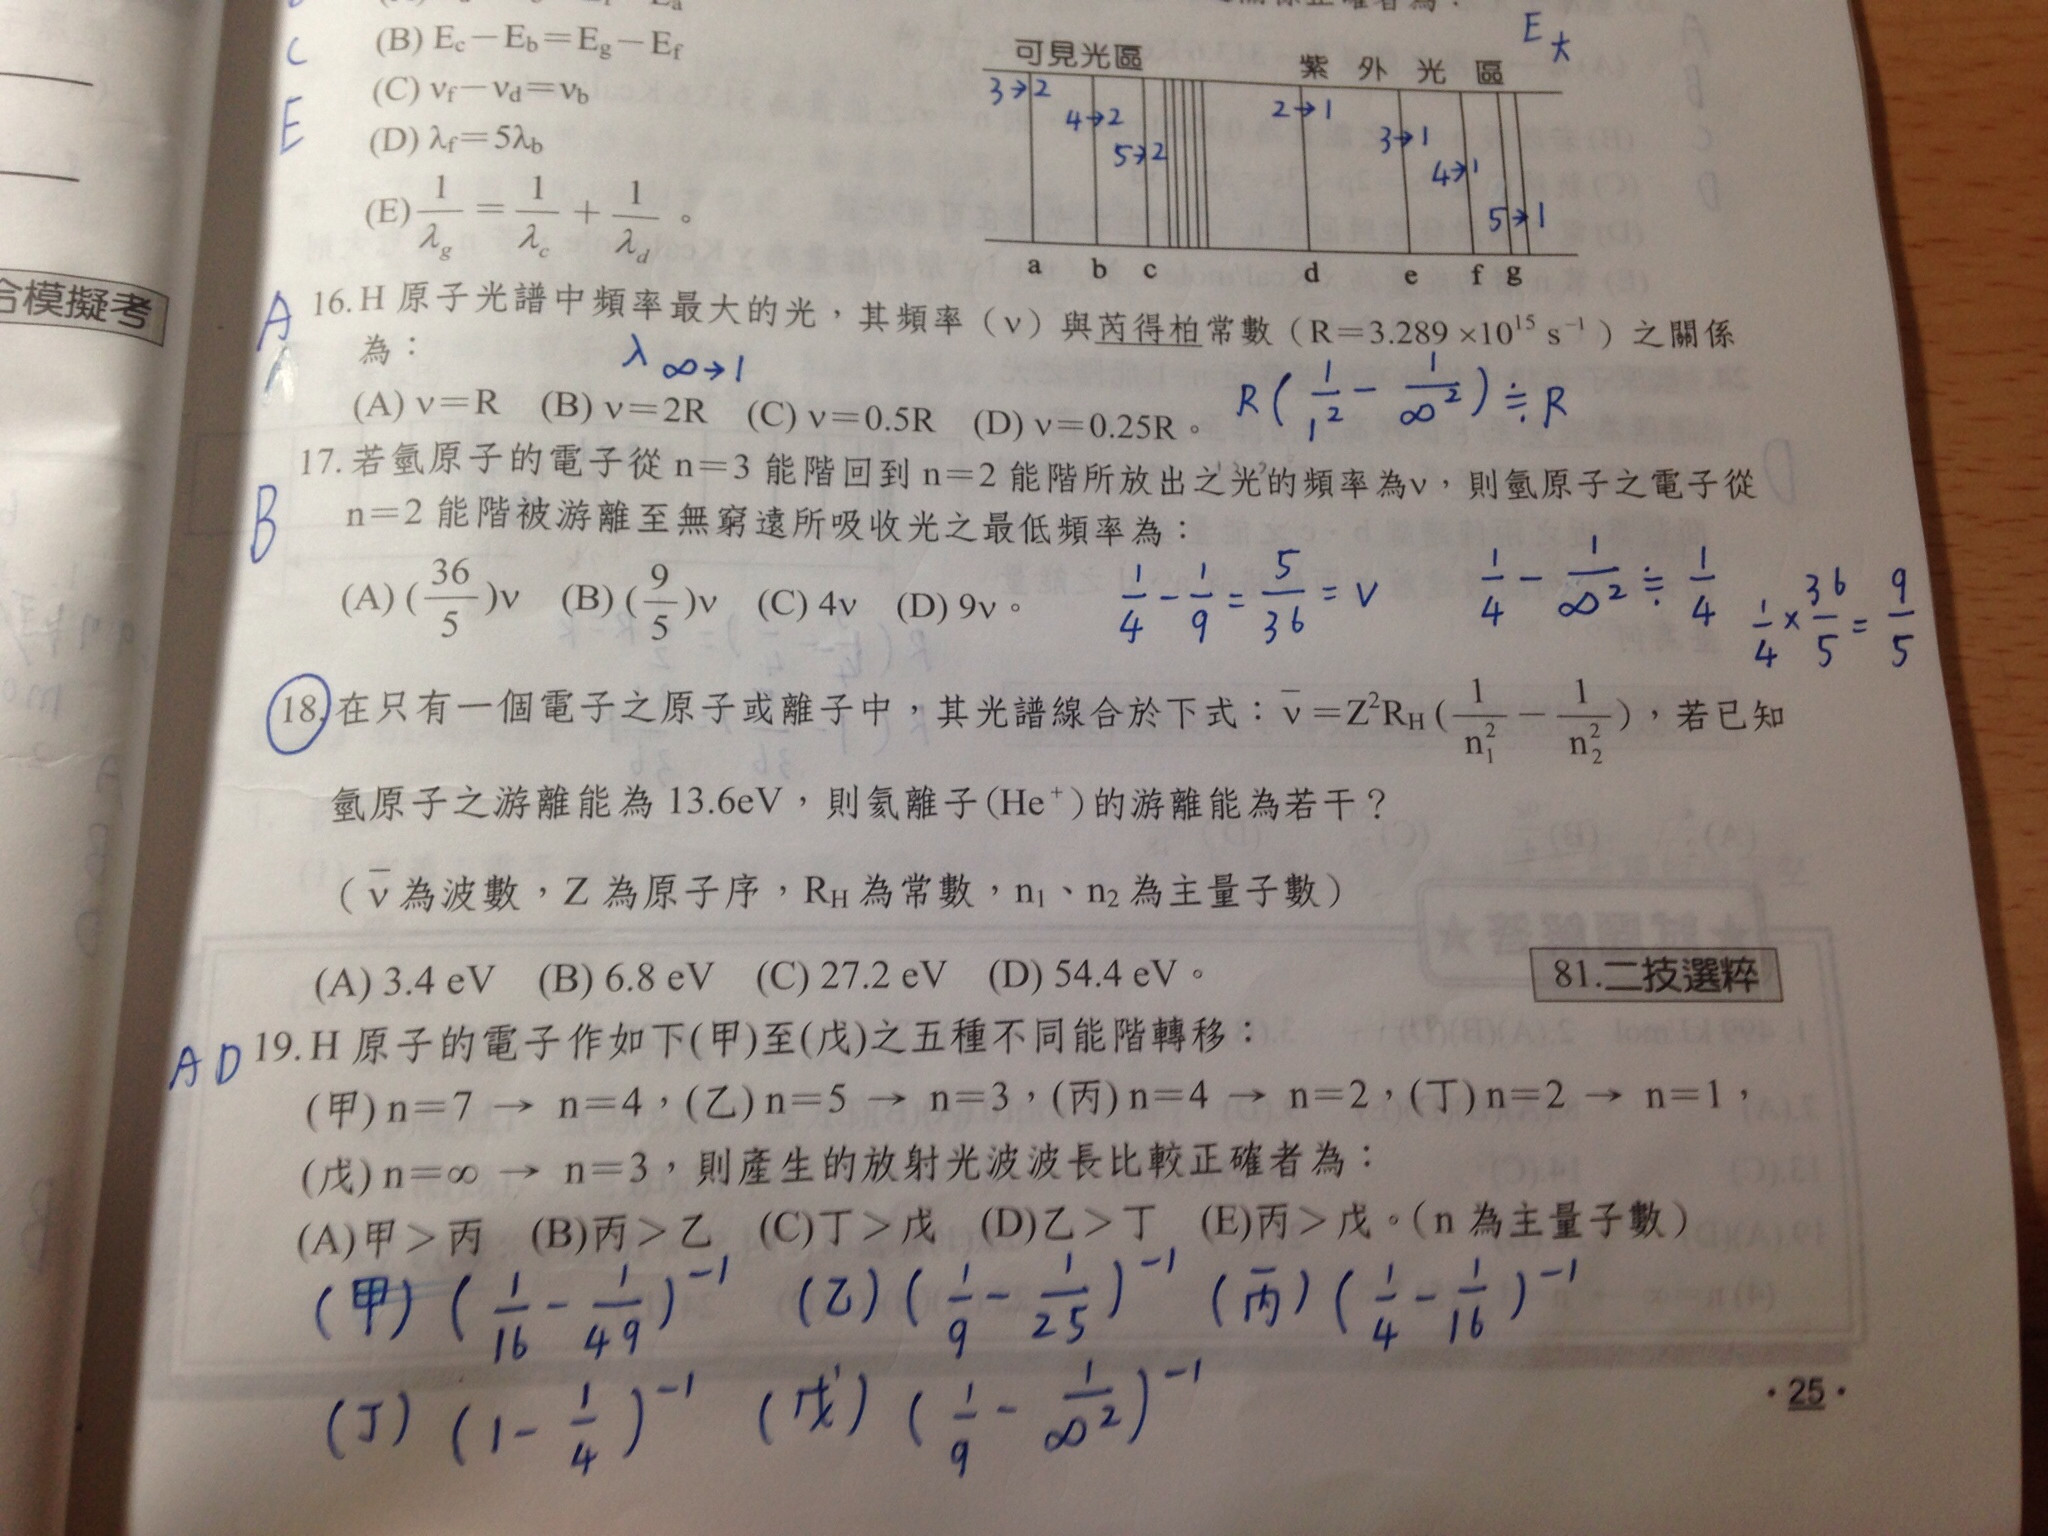 C
(B) Ec－Eb＝Eg－Ef
E大
可見光區
紫外光區
(C) νf－νd＝νb
3→2
4→2
5→2
2→1
3→1
4→1
5→1
E
(D) λf＝5λb
(E) 1/λg ＝ 1/λc ＋ 1/λd 。
a b c d e f g
合模擬考
A
16. H 原子光譜中頻率最大的光，其頻率（ν）與芮得柏常數（R＝3.289 ×10¹⁵ s⁻¹）之關係
為：
λ ∞→1
(A) ν＝R (B) ν＝2R (C) ν＝0.5R (D) ν＝0.25R。
R(1/1² － 1/∞²) ≒ R
17. 若氫原子的電子從 n＝3 能階回到 n＝2 能階所放出之光的頻率為ν，則氫原子之電子從
B
n＝2 能階被游離至無窮遠所吸收光之最低頻率為：
(A) (36/5)ν (B) (9/5)ν (C) 4ν (D) 9ν。
1/4 － 1/9 = 5/36 = ν
1/4 － 1/∞² ≒ 1/4
1/4 × 36/5 = 9/5
18. 在只有一個電子之原子或離子中，其光譜線合於下式：ν̄＝Z²RH(1/n₁² － 1/n₂²)，若已知
氫原子之游離能為 13.6eV，則氦離子(He⁺)的游離能為若干？
（ν̄ 為波數，Z 為原子序，RH 為常數，n₁、n₂ 為主量子數）
(A) 3.4 eV (B) 6.8 eV (C) 27.2 eV (D) 54.4 eV。
81.二技選粹
AD
19. H 原子的電子作如下(甲)至(戊)之五種不同能階轉移：
(甲) n＝7 → n＝4，(乙) n＝5 → n＝3，(丙) n＝4 → n＝2，(丁) n＝2 → n＝1，
(戊) n＝∞ → n＝3，則產生的放射光波波長比較正確者為：
(A)甲＞丙 (B)丙＞乙 (C)丁＞戊 (D)乙＞丁 (E)丙＞戊。（n 為主量子數）
(甲) (1/16 － 1/49)⁻¹ (乙) (1/9 － 1/25)⁻¹ (丙) (1/4 － 1/16)⁻¹
(丁) (1－1/4)⁻¹ (戊) (1/9 － 1/∞²)⁻¹
·25·